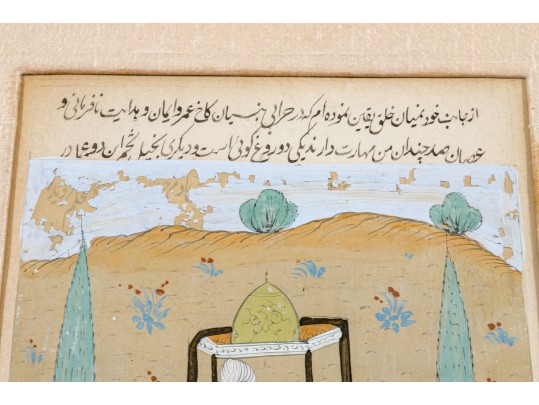 از جانب خود نمیان خلق یقاین نموده ام که در خرابی بنسیان کاخ عمر و ایمان و هدایت نافرمانی و
عصیان صد چندان من مهارت دارند یکی دروغ گوئی است و دیگری بخیل لئیم این دو عماد